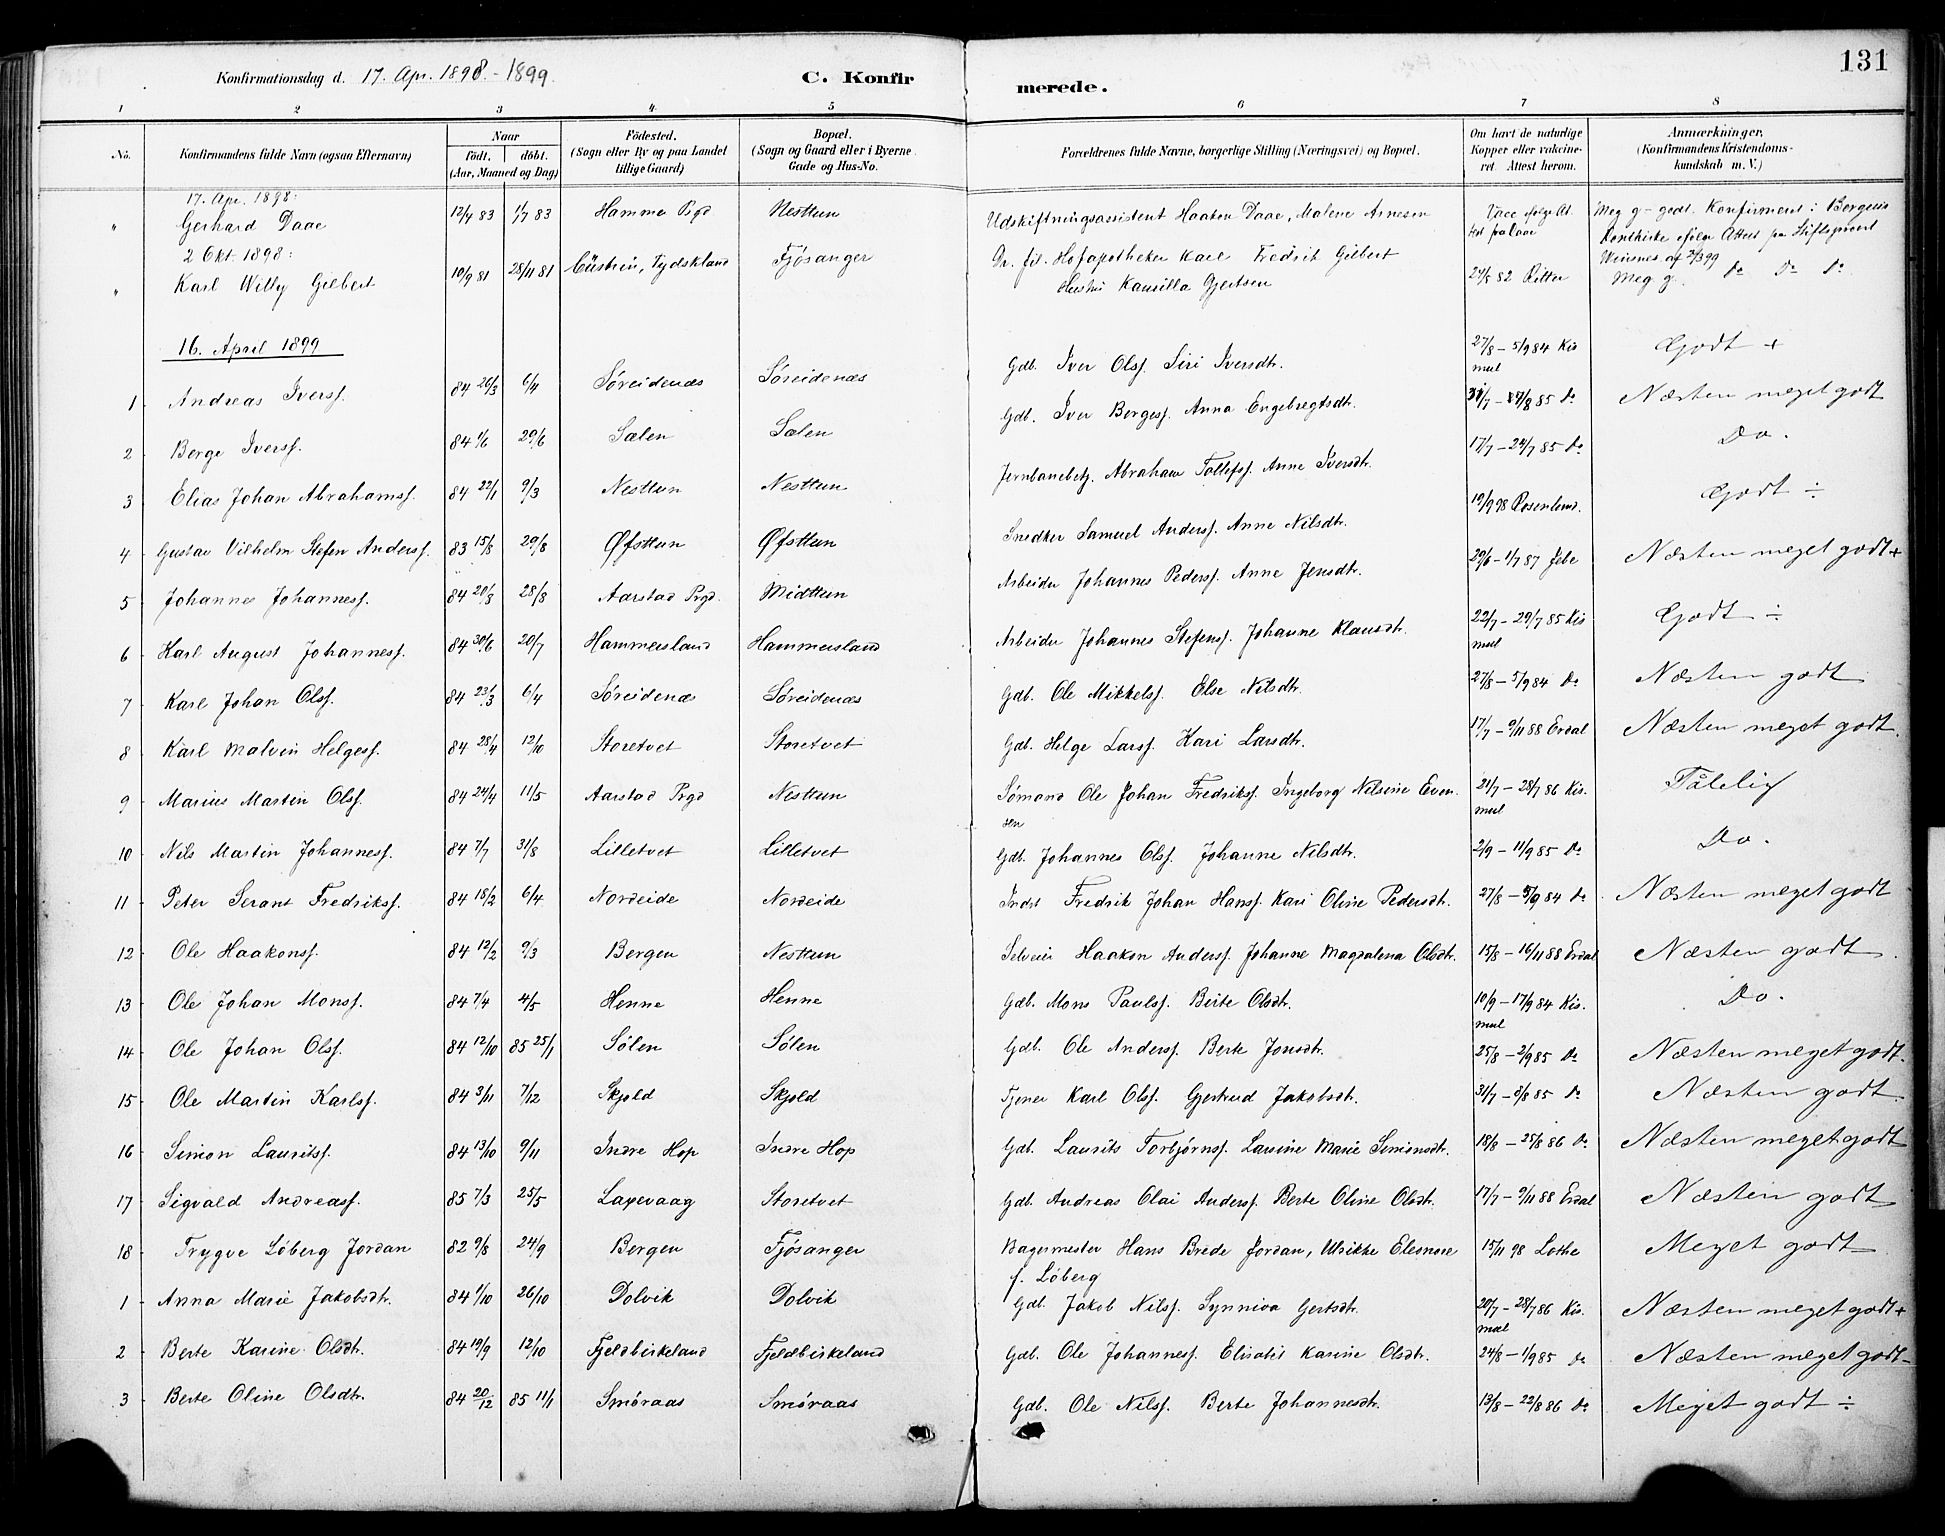 131
Konfirmationsdag d. 17. Apr. 1898. - 1899. C. Konfirmerede.
1 2 3 4 5 6 7 8
No. Konfirmandens fulde Navn (ogsaa Efternavn) Naar födt. döbt. (Aar, Maaned og Dag) Födested. (Sogn eller By og paa Landet tillige Gaard) Bopæl. (Sogn og Gaard eller i Byerne Gade og Hus-No. Forældrenes fulde Navne, borgerlige Stilling (Næringsvei) og Bopæl. Om havt de naturlige Kopper eller vakcineret. Attest herom. Anmærkninger, (Konfirmandens Kristendomskundskab m. V.)
17. Apr. 1898:
" Gerhard Daae 12/4 83 1/7 83 Hammer Prgd Nesttun Udskiftningsassistent Haaken Daae, Malene Arnesen Vacc ifølge Attest fra Meg g - godt. Konfirmeret i Bergens
Attest fra Stiftsprovst
2 Okt. 1898:
" Karl Willy Gilbert 10/9 81 28/11 81 Cüstrin, Tydskland Fjösanger Dr. fil. Hofapotheker Karl Fredrik Gilbert 24/5 82 Ritter Meg g. Do Do Do
Hustru Kamilla Gjertsen
16. April 1899
1 Andreas Iversf. 84 26/3 6/4 Søreidenæs Søreidenæs Gdb. Iver Olsf. Siri Iversdtr. 27/8 - 5/9 84 Kismul Godt +
2 Berge Iversf. 84 1/6 29/6 Sælen Sælen Gdb. Iver Bergesf. Anna Engebregtsdtr. 31/7 - 14/8 85 Do Næsten meget godt
3 Elias Johan Abrahamsf. 84 22/1 9/3 Nesttun Nesttun Jernbanebetj. Abraham Tollefsf. Anne Iversdtr. 17/7 - 24/7 85 Do Do.
4 Gustav Vilhelm Stefen Andersf. 83 15/8 29/8 Øfsttun Øfsttun Snedker Samuel Andersf. Anne Nilsdtr. 19/9 98 Rosenlund. Godt ÷
5 Johannes Johannesf. 84 20/3 28/8 Aarstad Prgd. Midttun Arbeider Johannes Pedersf. Anne Jensdtr. 29/6 - 1/7 87 Jebe Næsten meget godt +
6 Karl August Johannesf. 84 30/6 20/7 Hammersland Hammersland Arbeider Johannes Stefensf. Johanne Klausdtr. 22/7 - 29/7 85 Kismul Godt ÷
7 Karl Johan Olsf. 84 23/3 6/4 Søreidenæs Søreidenæs Gdb. Ole Mikkelsf. Else Nilsdtr. 27/8 - 5/9 84 Do Næsten godt
8 Karl Malvin Helgesf. 84 28/4 12/10 Storetvet Storetvet Gdb. Helge Larsf. Kari Larsdtr. 17/7 - 9/11 88 Erdal Næsten meget godt.
9 Marius Martin Olsf. 84 24/4 11/5 Aarstad Prgd Nesttun Sømand Ole Johan Fredriksf. Ingeborg Nilsine Evensen 21/7 - 28/7 86 Kismul Tålelig
10 Nils Martin Johannesf. 84 7/7 31/8 Lilletvet Lilletvet Gdb. Johannes Olsf. Johanne Nilsdtr. 2/9 - 11/9 85 Do Do.
11 Peter Serant Fredriksf. 84 18/2 6/4 Nordeide Nordeide Indst Fredrik Johan Hansf. Kari Oline Pedersdtr. 27/8 - 5/9 84 Do Næsten meget godt
12 Ole Haakonsf. 84 12/2 9/3 Bergen Nesttun Selveier Haakon Andersf. Johanne Magdalena Olsdtr. 15/8 - 16/11 88 Erdal Næsten godt.
13 Ole Johan Monsf. 84 7/4 4/5 Henne Henne Gdb. Mons Paulsf. Berte Olsdtr. 10/9 - 17/9 84 Kismul Do.
14 Ole Johan Olsf. 84 12/10 85 25/1 Sølen Sølen Gdb. Ole Andersf. Berte Jonsdtr. 25/8 - 2/9 85 Do Næsten meget godt.
15 Ole Martin Karlsf. 84 3/11 7/12 Skjold Skjold Tjener Karl Olsf. Gjertrud Jakobsdtr. 31/7 - 8/8 85 Do Næsten godt.
16 Simon Lauritsf. 84 13/10 9/11 Indre Hop Indre Hop Gdb. Laurits Torbjørnsf. Laurine Marie Simonsdtr. 18/8 - 25/8 86 Do Næsten meget godt
17 Sigvald Andreasf. 85 7/3 25/5 Laxevaag Storetvet Gdb. Andreas Olai Andersf. Berte Oline Olsdtr. 17/7 - 9/11 88 Erdal Næsten godt
18 Trygve Löberg Jordan 82 9/8 24/9 Bergen Fjösanger Bagermester Hans Brede Jordan, Ulrikke Eleonore f. Löberg 15/11 98 Lothe Meget godt
1 Anna Marie Jakobsdtr. 84 1/10 26/10 Dolvik Dolvik Gdb. Jakob Nilsf. Synniva Gertsdtr. 20/7 - 28/7 86 Kismul Næsten meget godt +
2 Berte Karine Olsdtr. 84 19/9 12/10 Fjeldbirkeland Fjeldbirkeland Gdb. Ole Johannesf. Elisabet Karine Olsdtr. 24/8 - 1/9 85 Do Næsten meget godt -
3 Berte Oline Olsdtr. 84 20/12 85 11/1 Smöraas Smöraas Gdb. Ole Nilsf. Berte Johannesdtr. 13/8 - 22/8 86 Do Meget godt ÷